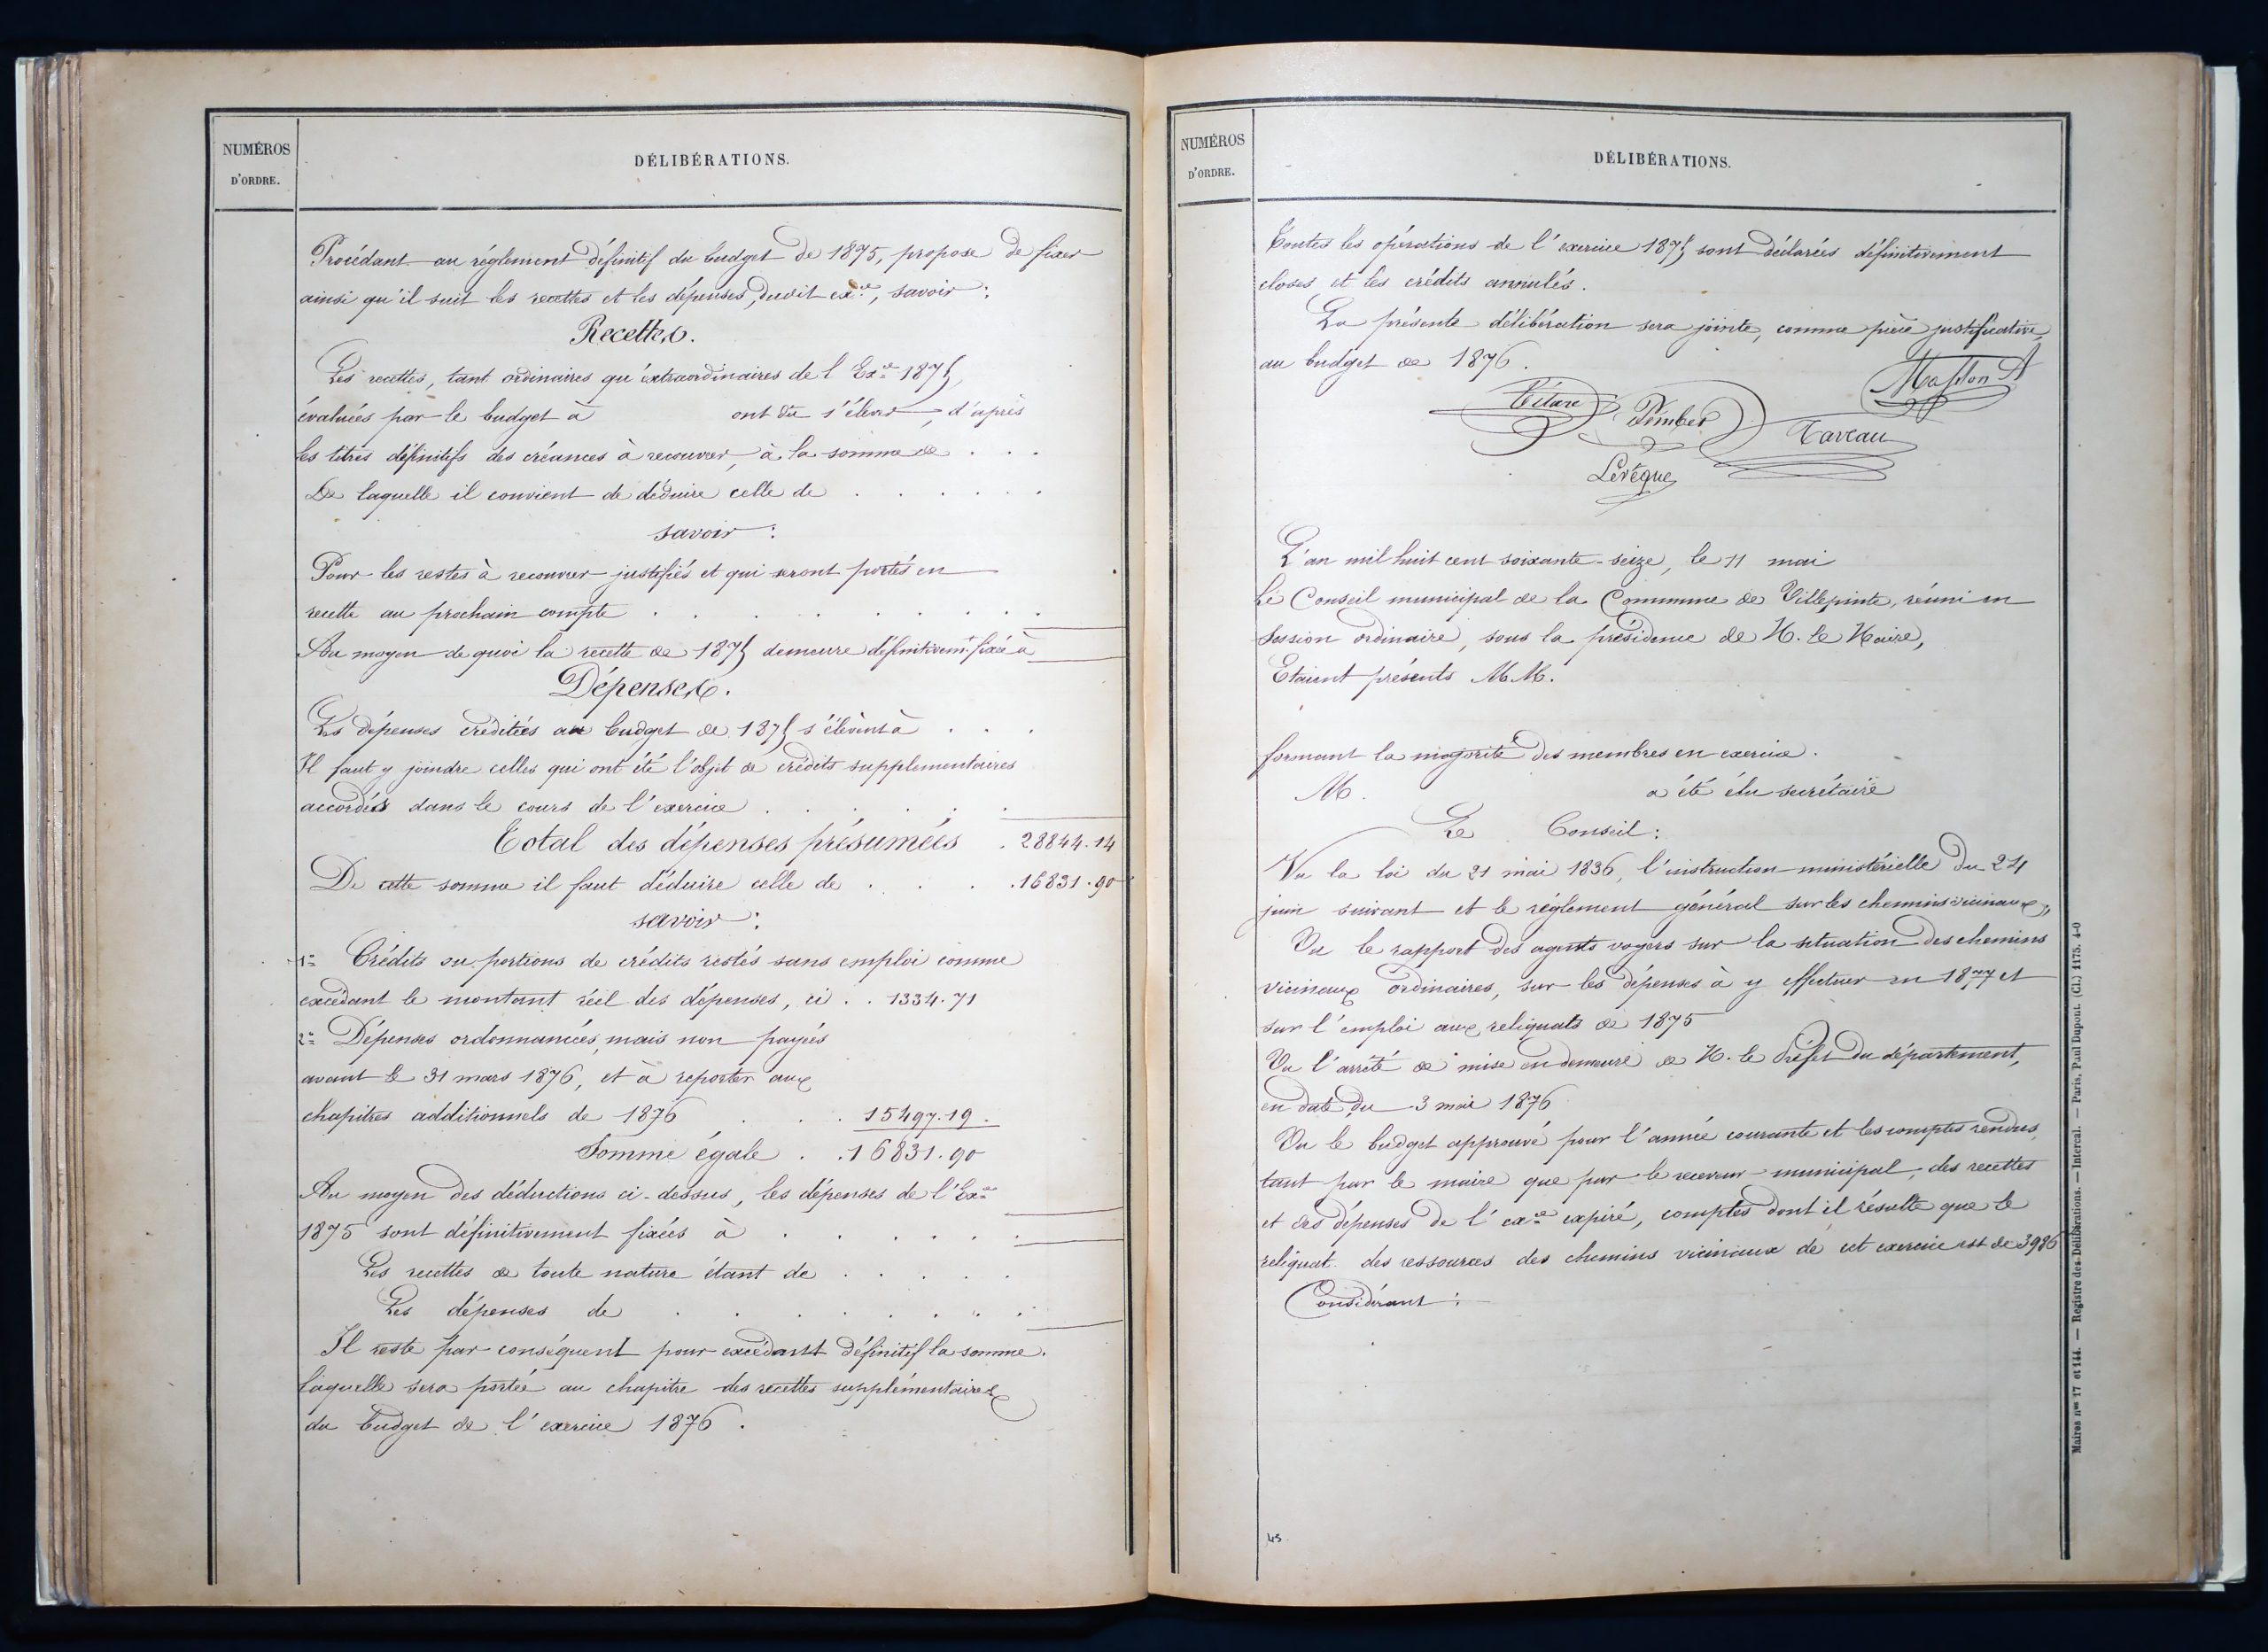 NUMÉROS
D'ORDRE.
DÉLIBÉRATIONS.
Procédant au réglement définitif du budget de 1875, propose de fixer
ainsi qu'il suit les recettes et les dépenses, dudit exce, savoir :
Recettes.
Les recettes, tant ordinaires qu'extraordinaires de l'Exce 1875,
évaluées par le budget à ont dû s'élever, d'après
les titres définitifs des créances à recouvrer, à la somme de . . .
De laquelle il convient de déduire celle de . . . . . .
savoir :
Pour les restes à recouvrer justifiés et qui seront portés en
recette au prochain compte . . . . . . . .
Au moyen de quoi la recette de 1875 demeure définitivemt fixée à
Dépenses.
Les dépenses créditées au budget de 1875 s'élèvent à . . .
Il faut y joindre celles qui ont été l'objet de crédits supplementaires
accordés dans le cours de l'exercice . . . . . .
Total des dépenses présumées . 28844.14
De cette somme il faut déduire celle de . . . . 16831.90
savoir :
1° Crédits ou portions de crédits restés sans emploi comme
excédant le montant réel des dépenses, ci . . 1334.71
2° Dépenses ordonnancées, mais non payées
avant le 31 mars 1876, et à reporter aux
chapitres additionnels de 1876 . . . 15497.19.
Somme égale . . 16831.90
Au moyen des déductions ci-dessus, les dépenses de l'Exce
1875 sont définitivement fixées à . . . . . .
Les recettes de toute nature étant de . . . . .
Les dépenses de . . . . . . .
Il reste par conséquent pour excédant définitif la somme.
laquelle sera portée au chapitre des recettes supplémentaires
du budget de l'exercice 1876.
NUMÉROS
D'ORDRE.
DÉLIBÉRATIONS.
Toutes les opérations de l'exercice 1875 sont déclarées définitivement
closes et les crédits annulés.
La présente délibération sera jointe, comme pièce justificative,
au budget de 1876.
Masson A
Pimber
Taveau
Levêque
L'an mil huit cent soixante-seize, le 11 mai
Le Conseil municipal de la Commune de Villepinte, réuni en
session ordinaire, sous la présidence de M. le Maire,
Etaient présents MM.
formant la majorité des membres en exercice.
M. a été élu secrétaire
Le Conseil :
Vu la loi du 21 mai 1836, l'instruction ministérielle du 24
juin suivant et le réglement général sur les chemins vicinaux ;
Vu le rapport des agents voyers sur la situation des chemins
vicinaux ordinaires, sur les dépenses à y effectuer en 1877 et
sur l'emploi aux reliquats de 1875
Vu l'arrêté de mise en demeure de M. le Préfet du département,
en date du 3 mai 1876
Vu le budget approuvé pour l'année courante et les comptes rendus,
tant par le maire que par le receveur municipal, des recettes
et des dépenses de l'exce expiré, comptes dont il résulte que le
reliquat des ressources des chemins vicinaux de cet exercice est de 3986
Considérant :
45
Maires nos 17 et 144. — Registre des Délibérations. — Intercal. — Paris, Paul Dupont. (Cl.) 1175. 4-0